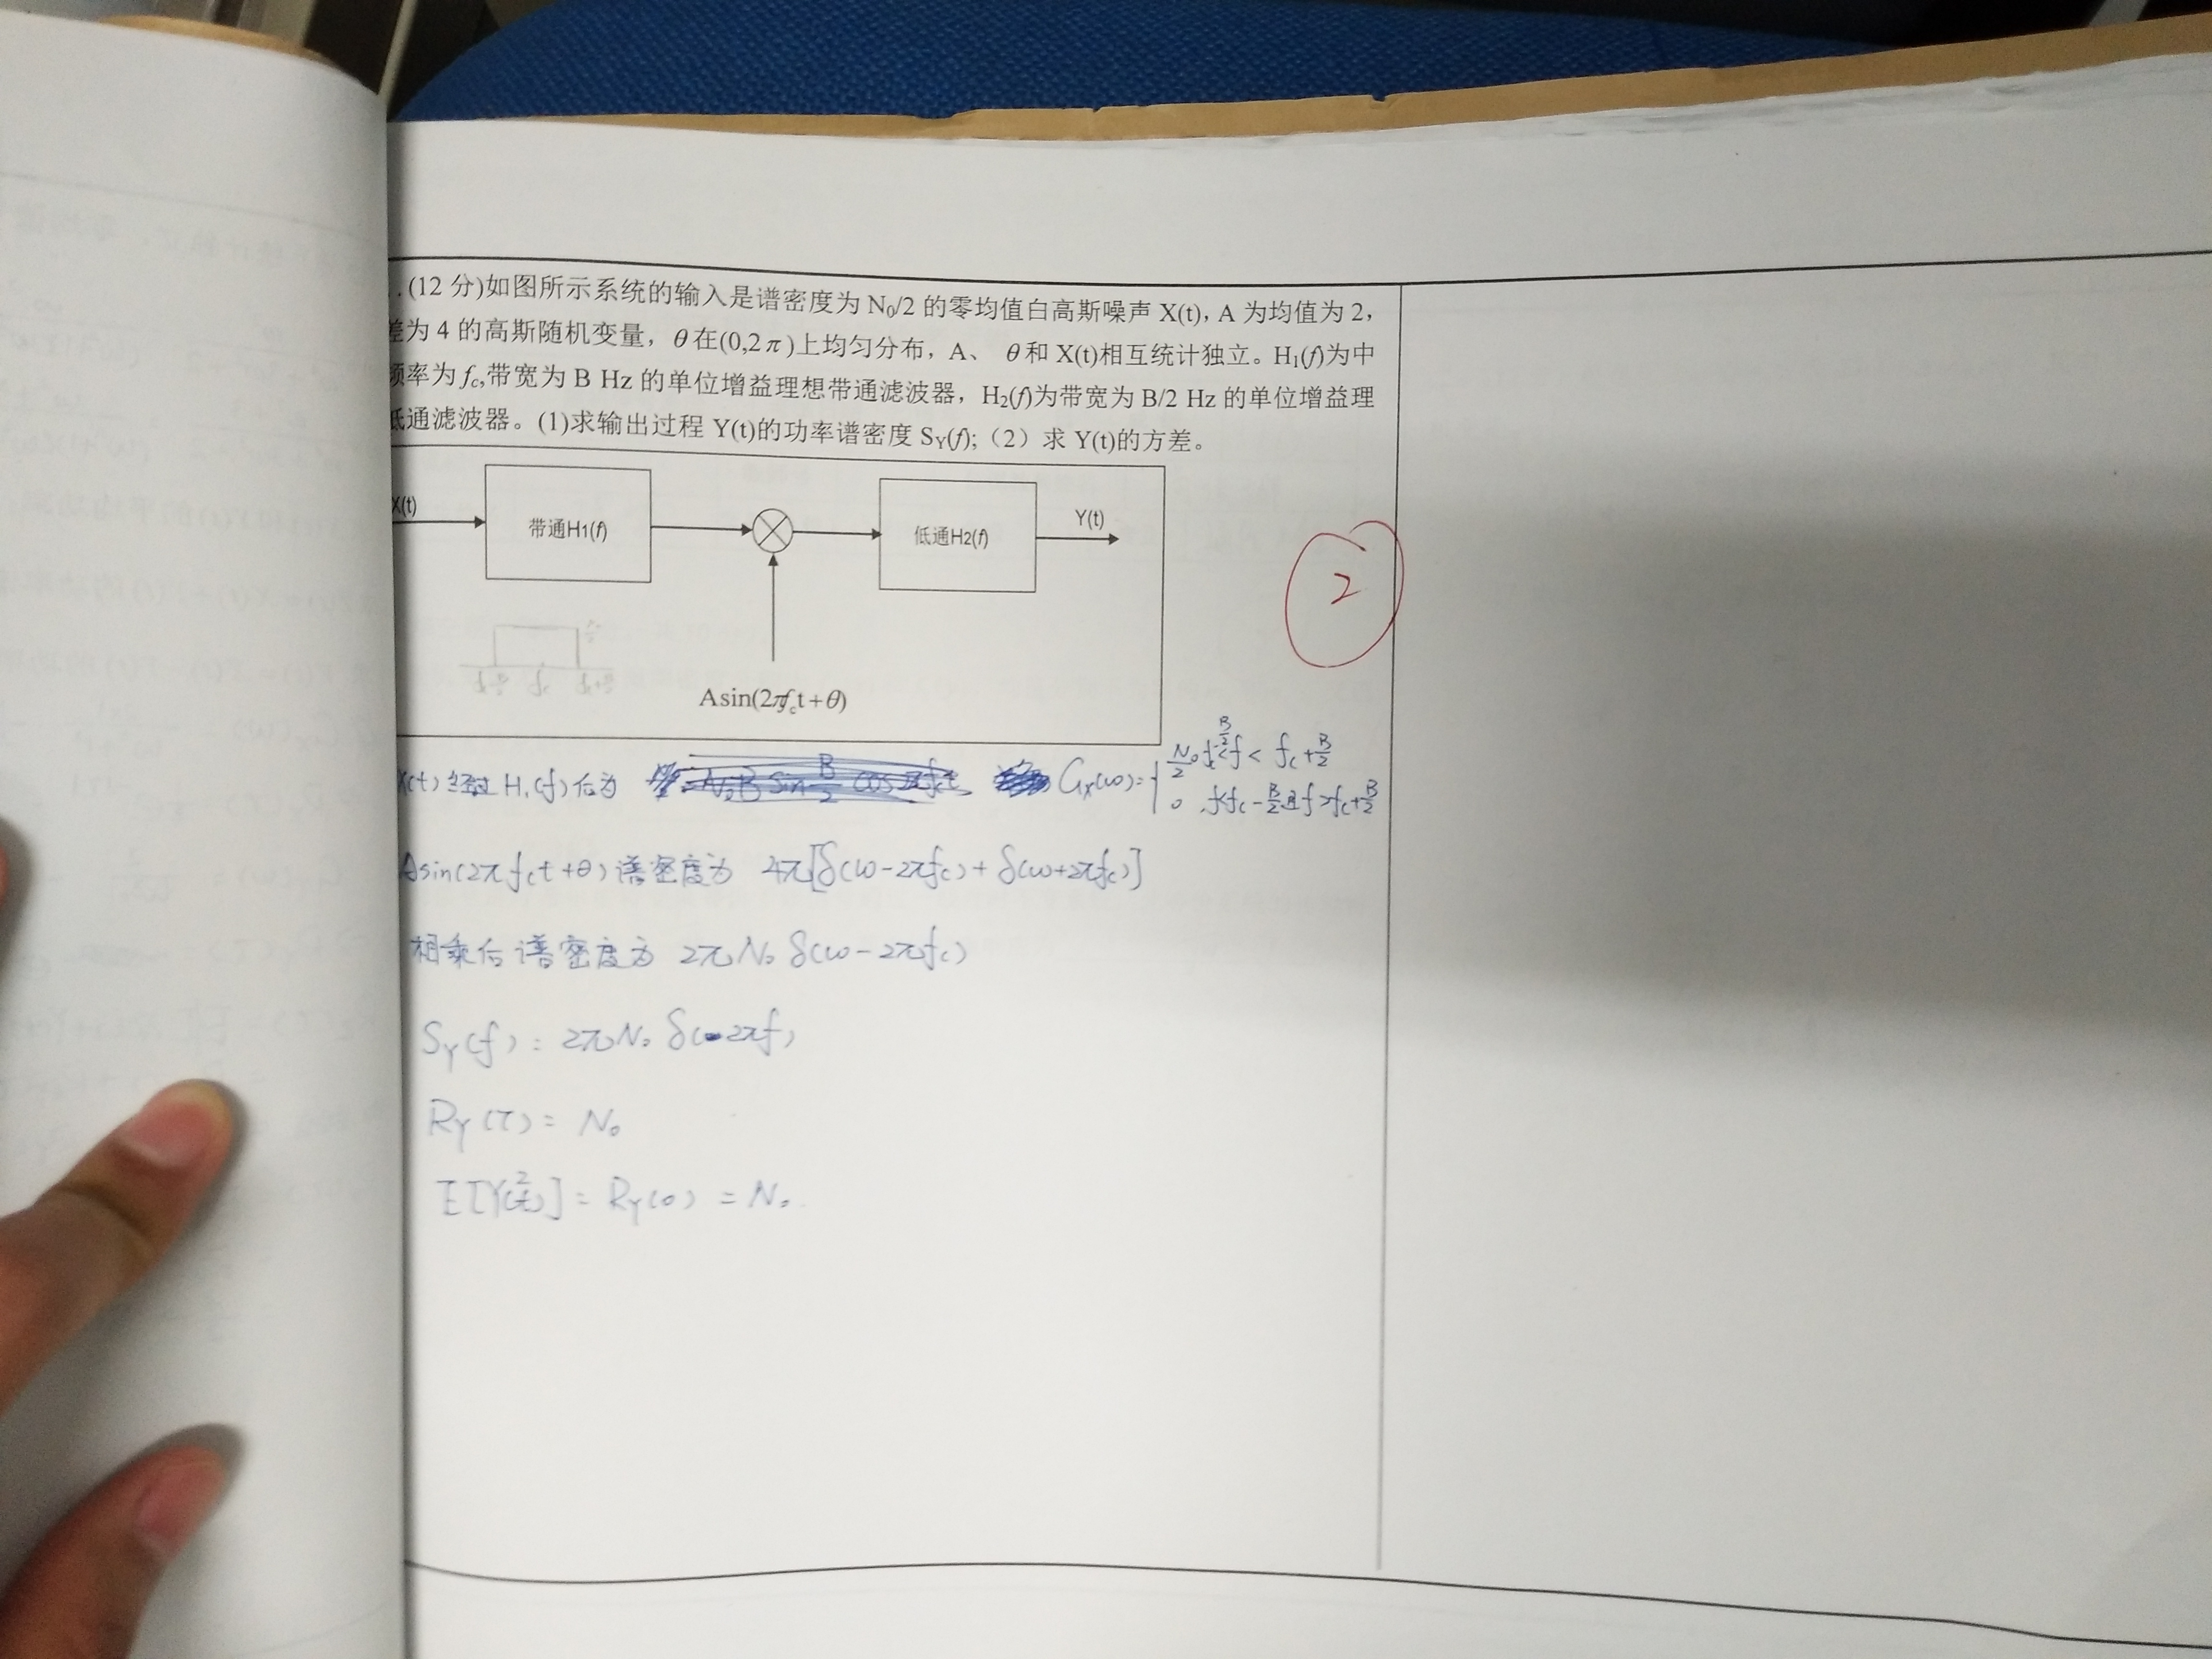 .(12 分)如图所示系统的输入是谱密度为 N₀/2 的零均值白高斯噪声 X(t), A 为均值为 2,
差为 4 的高斯随机变量，θ在(0,2π)上均匀分布，A、 θ和 X(t)相互统计独立。H₁(f)为中
频率为 fc,带宽为 B Hz 的单位增益理想带通滤波器，H₂(f)为带宽为 B/2 Hz 的单位增益理
低通滤波器。(1)求输出过程 Y(t)的功率谱密度 SY(f);（2）求 Y(t)的方差。
X(t)
带通H1(f)
低通H2(f)
Y(t)
2
Asin(2πfct+θ)
X(t)经过 H₁(f)后为 Gx(ω)= { N₀/2 fc-B/2<f< fc+B/2
0 , f<fc-B/2且f>fc+B/2
Asin(2πfct+θ)谱密度为 4π[δ(ω-2πfc)+δ(ω+2πfc)]
相乘后谱密度为 2πN₀ δ(ω-2πfc)
SY(f)= 2πN₀ δ(2πf)
RY(τ)= N₀
E[Y²(t)]= RY(0) = N₀.